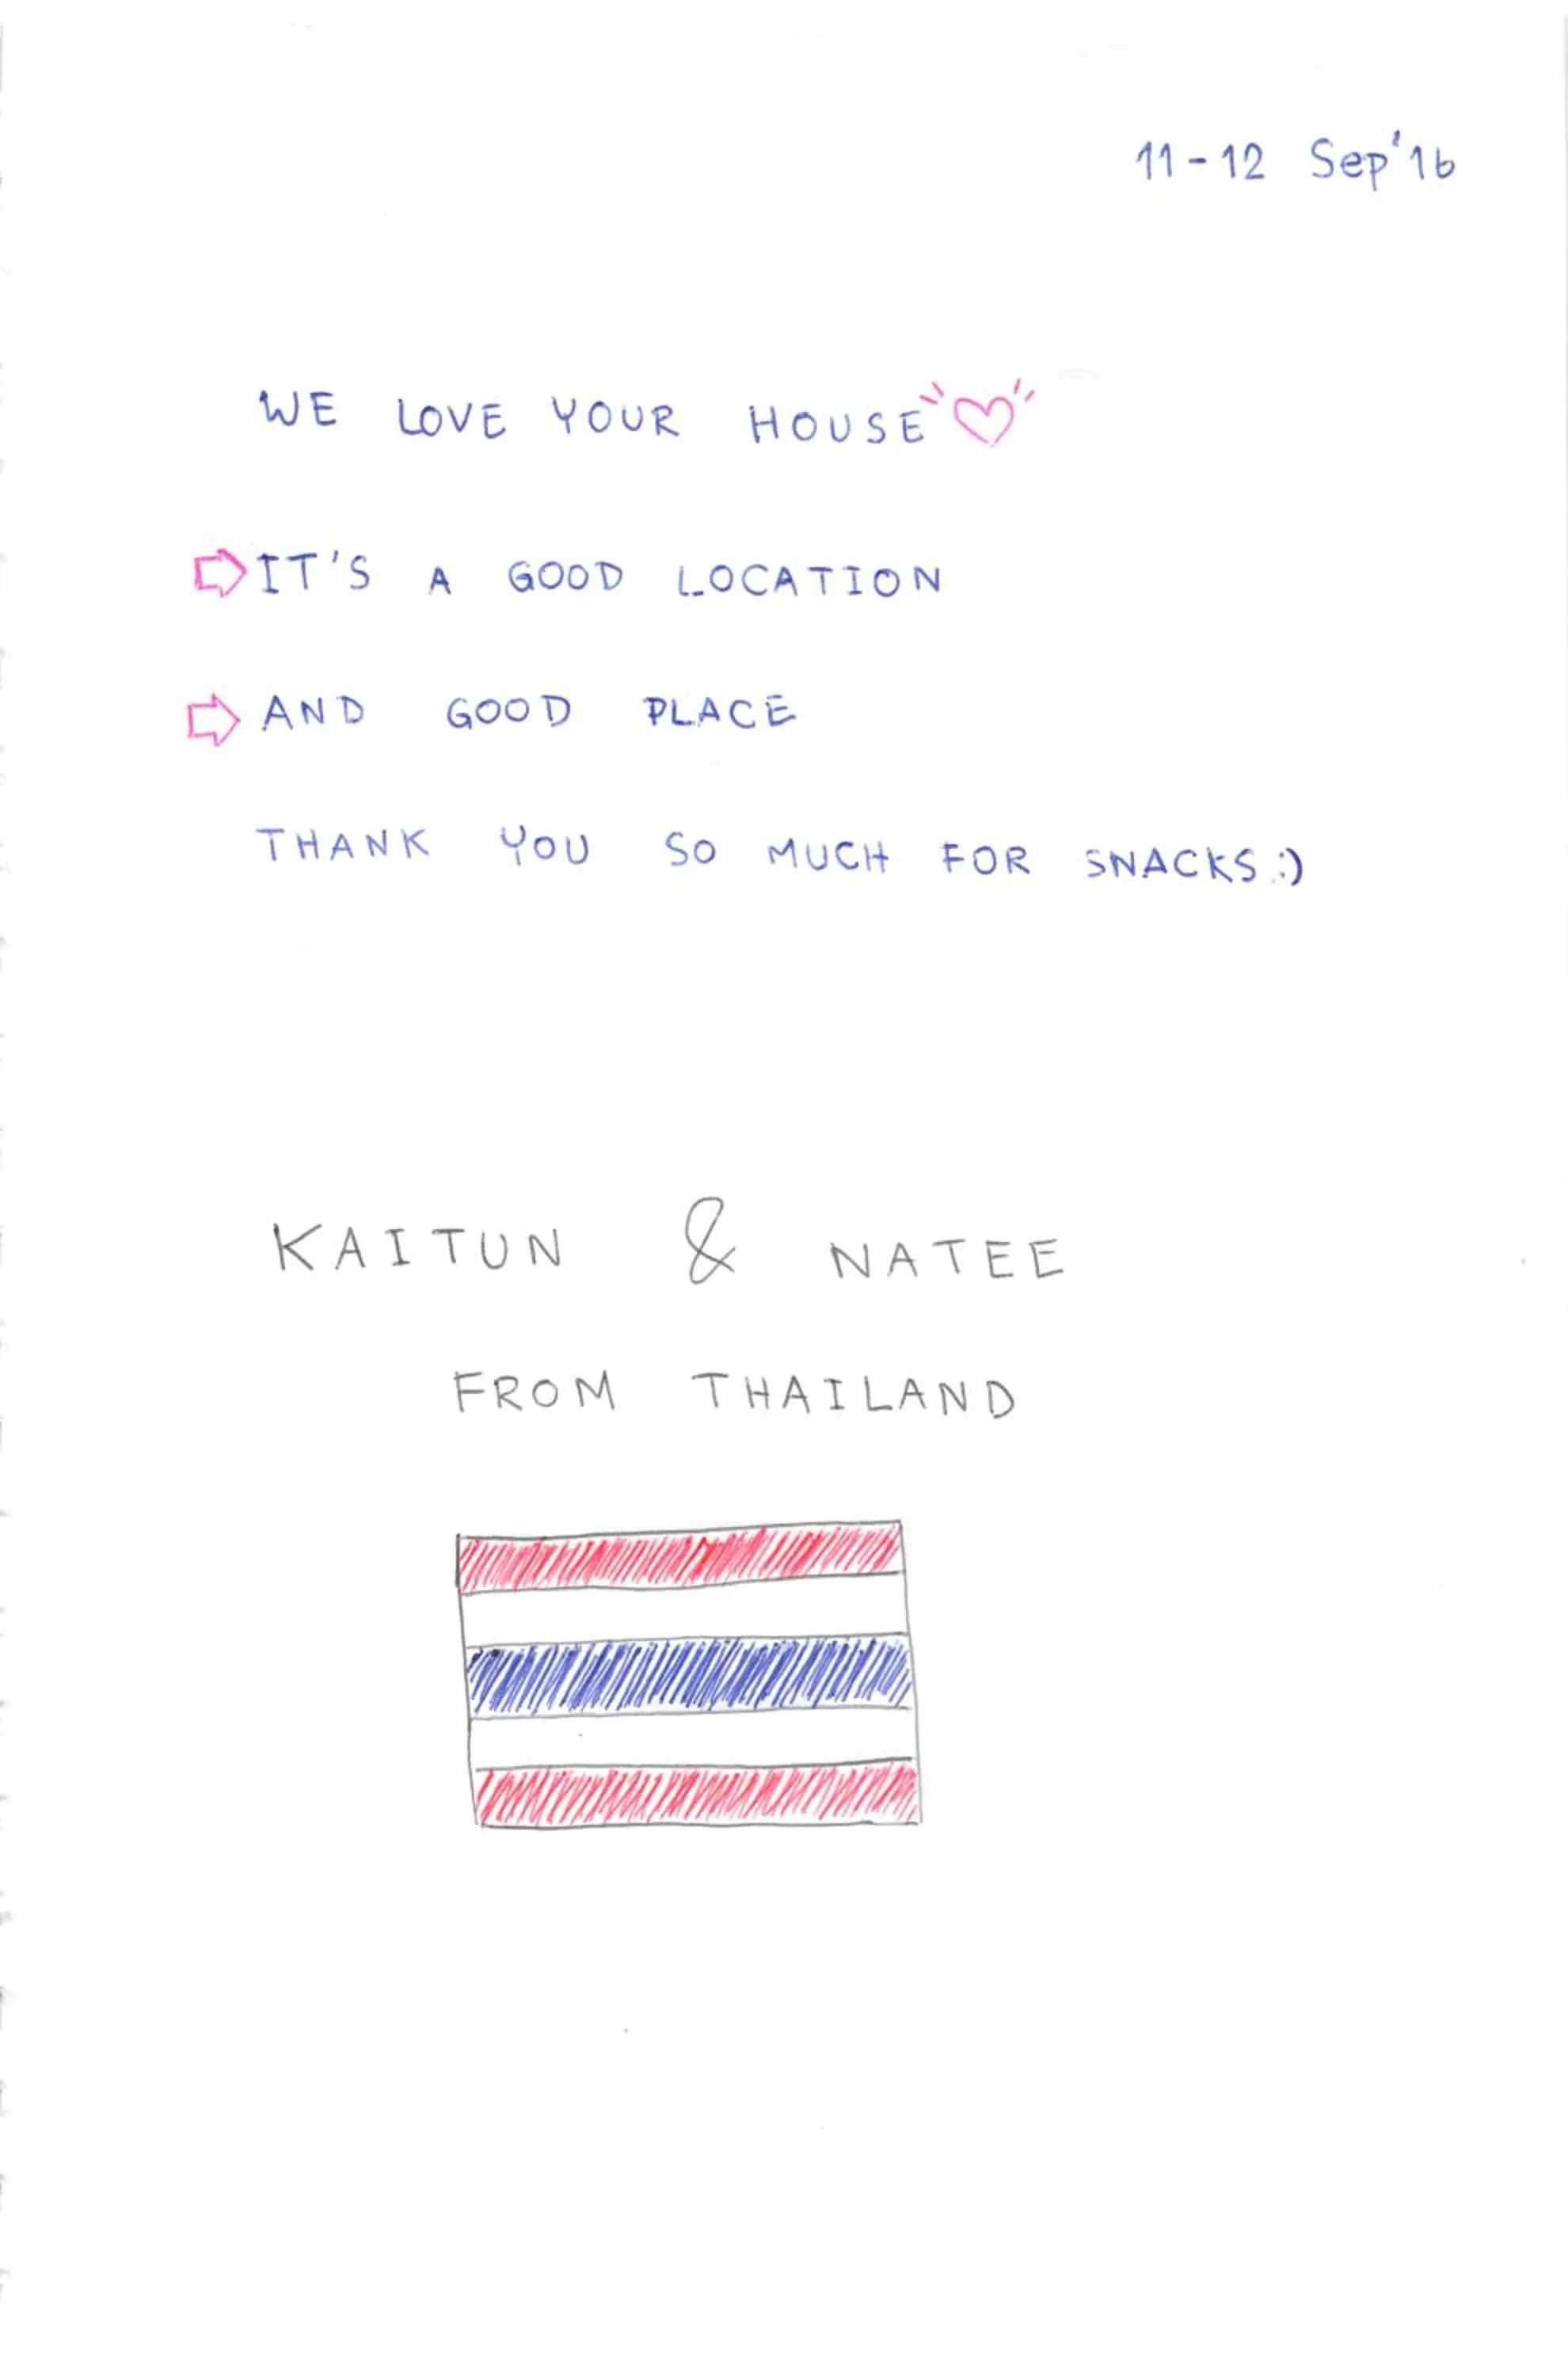 11-12 Sep'16
WE LOVE YOUR HOUSE
IT'S A GOOD LOCATION
AND GOOD PLACE
THANK YOU SO MUCH FOR SNACKS :)
KAITUN & NATEE
FROM THAILAND